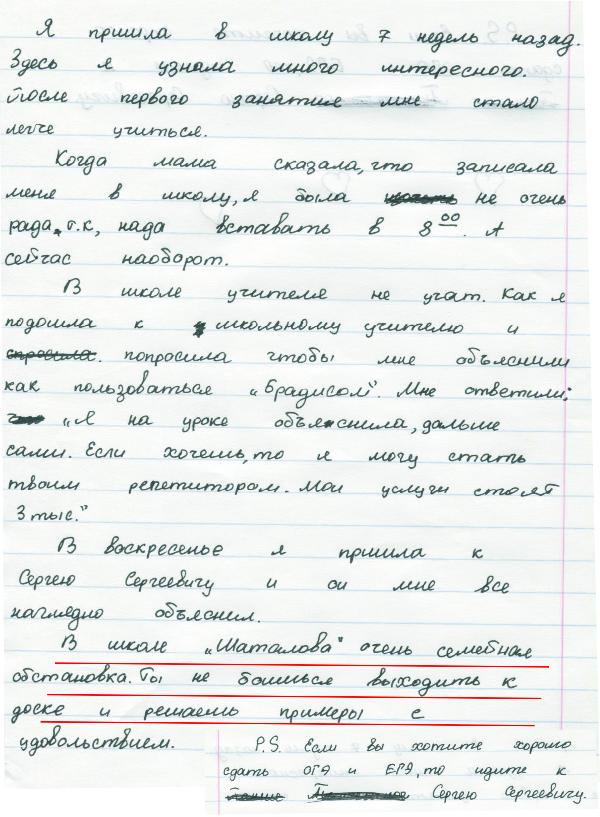 Я пришла в школу 7 недель назад.
Здесь я узнала много интересного.
После первого занятие мне стало
легче учиться.
Когда мама сказала, что записала
меня в школу, я была не очень
рада, т.к, нада вставать в 8 00. А
сейчас наоборот.
В школе учителя не учат. Как я
подошла к школьному учителю и
спросила. попросила чтобы мне объяснили
как пользоваться „Брадисом". Мне ответили:
„Я на уроке объяснила, дальше
сами. Если хочешь, то я могу стать
твоим репетитором. Мои услуги стоят
3 тыс."
В воскресенье я пришла к
Сергею Сергеевичу и он мне все
наглядно объяснил.
В школе „Шаталова" очень семейная
обстановка. Ты не боишься выходить к
доске и решаешь примеры с
удовольствием.
P.S. Если вы хотите хорошо
сдать ОГЭ и ЕГЭ, то идите к
Сергею Сергеевичу.